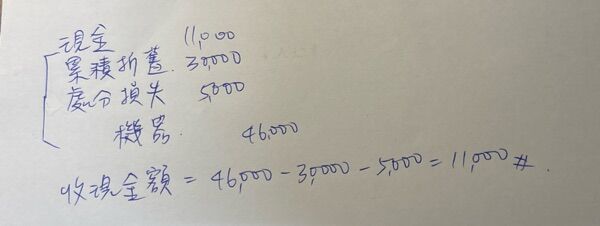 現金 11,000
累積折舊. 30,000
處分損失 5,000
機器. 46,000
收現金額 = 46,000 - 30,000 - 5,000 = 11,000 #.